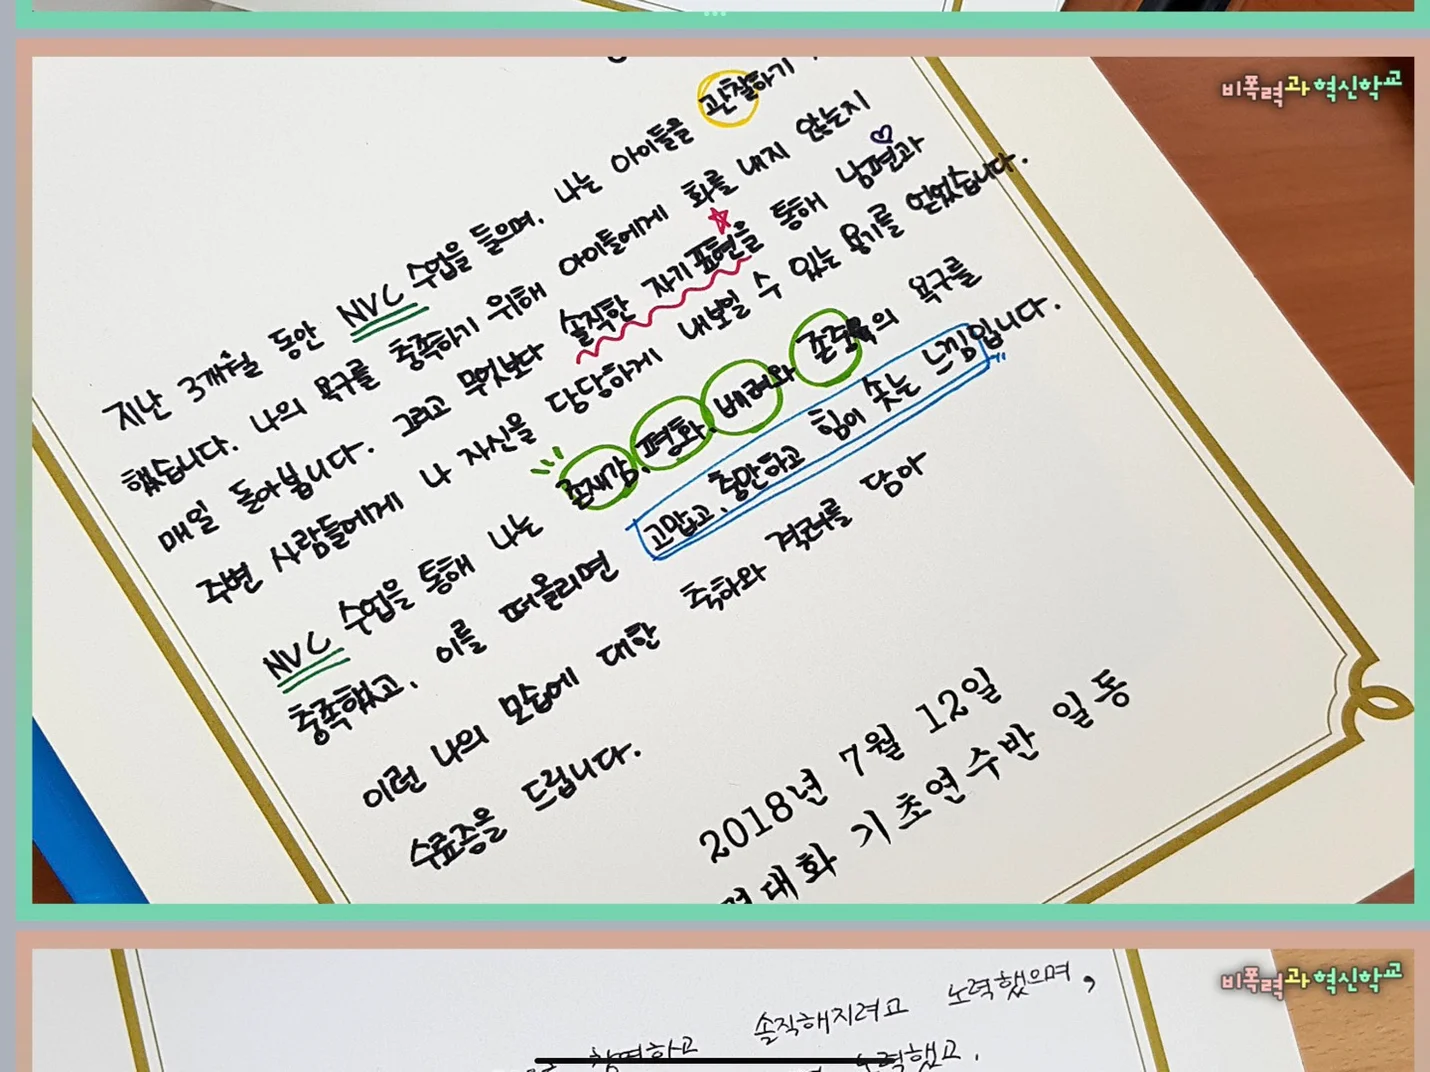 비폭력과 혁신학교
지난 3개월 동안 NVC 수업을 들으며, 나는 아이들을 관찰하기
했습니다. 나의 욕구를 충족하기 위해 아이들에게 화를 내지 않는지
매일 돌아봅니다. 그리고 무엇보다 솔직한 자기표현을 통해 남편과
주변 사람들에게 나 자신을 당당하게 내보일 수 있는 용기를 얻었습니다.
NVC 수업을 통해 나는 존재감, 평화, 배려와 존중의 욕구를
충족했고, 이를 떠올리면 고맙고, 충만하고 힘이 솟는 느낌입니다.
이런 나의 모습에 대한 축하와 격려를 담아
수료증을 드립니다.
2018년 7월 12일
대화 기초연수반 일동
비폭력과 혁신학교
솔직해지려고 노력했으며,
했고,